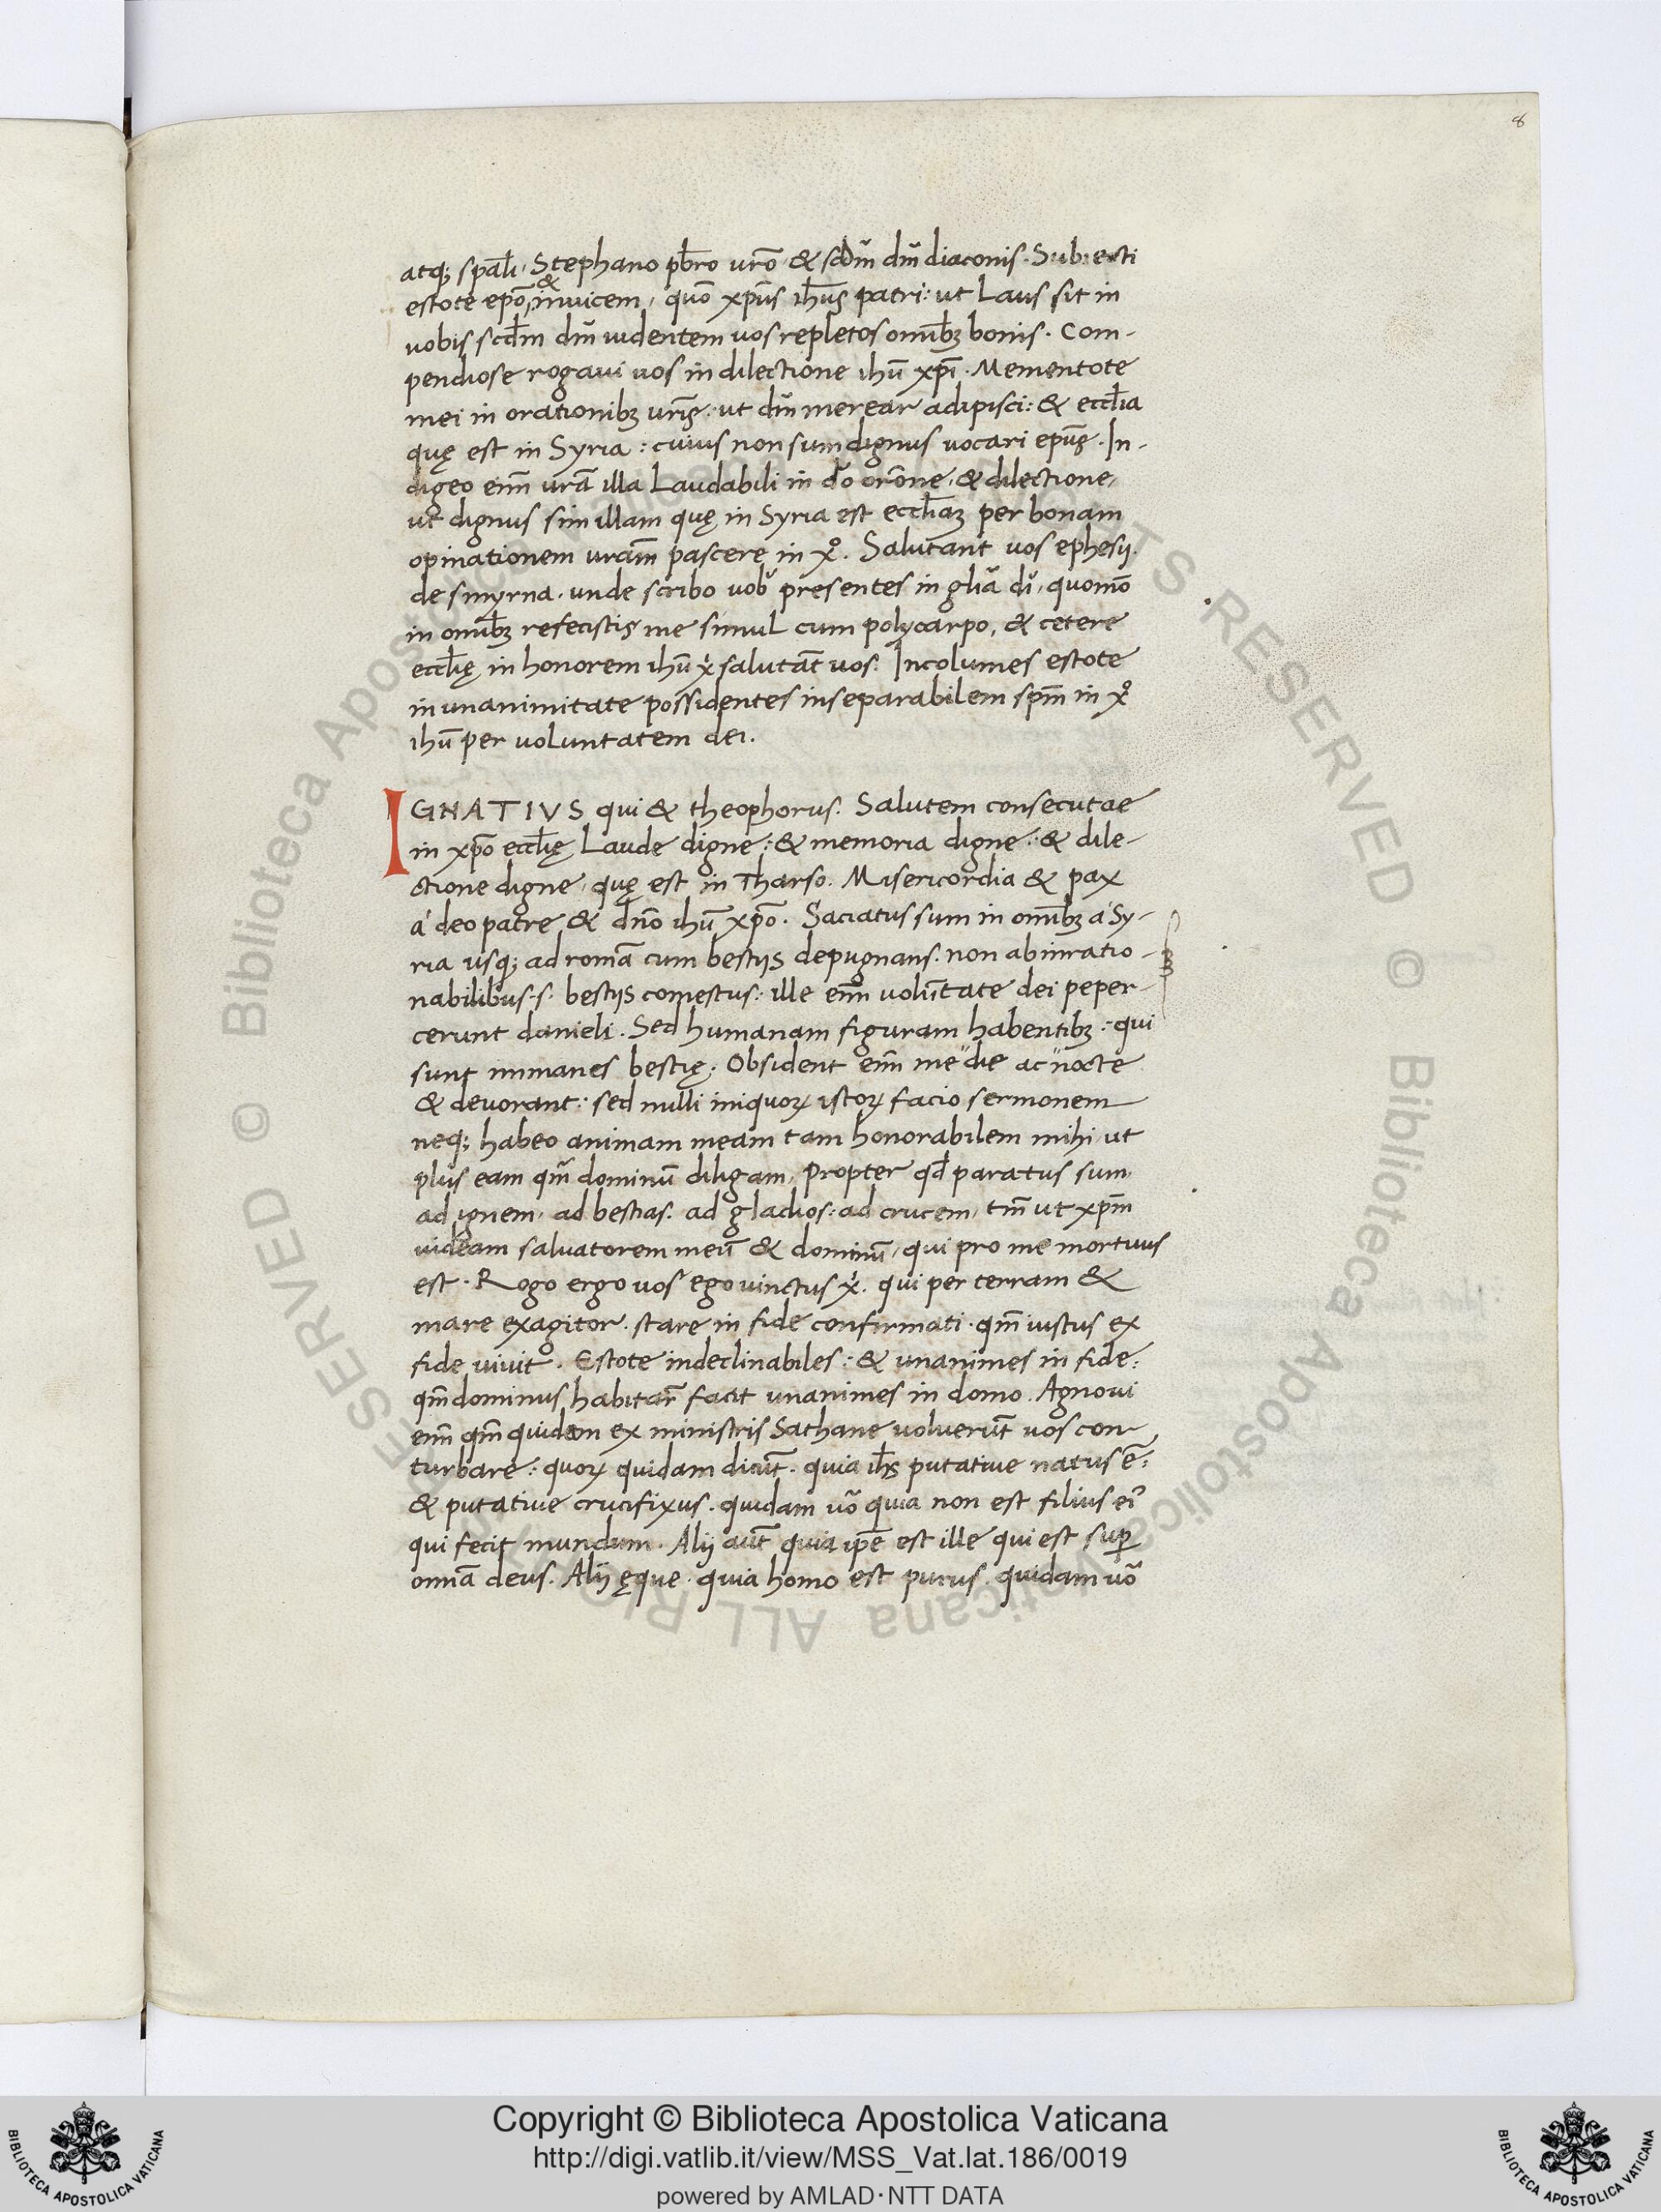 8
atq; spal̄i, Stephano pb̄ro vr̄o, & scdm̄ dm̄ diaconis. Subiecti
estote ep̄o, & invicem, quō xp̄us ih̄us patri: ut Laus sit in
vobis scdm̄ dm̄ videntem vos repletos omīb; bonis. Com-
pendiose rogavi vos in dilectione ihū xpī. Mementote
mei in orationib; vrīs: ut dm̄ merear adipisci: & eccl̄ia
quę est in Syria: cuius non sum dignus vocari ep̄us. In-
digeo enī vrā illa Laudabili in dō orōne, & dilectione,
ut dignus sim illam quę in Syria est eccl̄iaʒ per bonam
opinationem vrām pascere in xo. Salutant vos ephesij.
de smyrna, unde scribo vob presentes in gl̄ia dī, quomō
in omīb; refecistis me simul cum polycarpo, & cetere
eccl̄ię in honorem ihū xi salutāt vos. Incolumes estote
in unanimitate possidentes inseparabilem spm̄ in xo
ihū per voluntatem dei.
IGNATIVS qui & theophorus. Salutem consecutae
in xpō eccl̄ię Laude digne: & memoria digne: & dile-
ctione digne, quę est in Tharso. Misericordia & pax
á deo patre & dn̄o ihū xpō. Saciatus sum in omīb; á Sy-
ria usq; ad romā cum bestijs depugnans. non ab inratio-
nabilibus .s. bestijs comestus: ille enī volūtate dei peper-
cerunt danieli. Sed humanam figuram habentib;: qui
sunt immanes bestię. Obsident enī me die ac nocte
& devorant: sed nulli iniquoꝝ istoꝝ facio sermonem
neq; habeo animam meam tam honorabilem mihi, ut
plus eam qm̄ dominū diligam. Propter qd̄ paratus sum,
ad ignem, ad bestias. ad gladios: ad crucem, tm̄ ut xpm̄
videam salvatorem meū & dominū, qui pro me mortuus
est. Rogo ergo vos ego vinctus xi. qui per terram &
mare exagitor. stare in fide confirmati. qm̄ iustus ex
fide vivit. Estote indeclinabiles: & unanimes in fide:
qm̄ dominus habitar̄ facit unanimes in domo. Agnovi
enī qm̄ quidem ex ministris Sathane voluerūt vos con-
turbare: quoꝝ quidam dicūt. quia ih̄s putative natus ē:
& putative crucifixus. quidam vō quia non est filius ei
qui fecit mundum. Alij aūt quia ip̄e est ille qui est sup̄
omīa deus. Alij ęque. quia homo est purus. quidam vō
Copyright © Biblioteca Apostolica Vaticana
http://digi.vatlib.it/view/MSS_Vat.lat.186/0019
powered by AMLAD·NTT DATA
BIBLIOTECA APOSTOLICA VATICANA
BIBLIOTECA APOSTOLICA VATICANA
© Biblioteca Apostolica Vaticana ALL RIGHTS RESERVED © Biblioteca Apostolica Vaticana ALL RIGHTS RESERVED